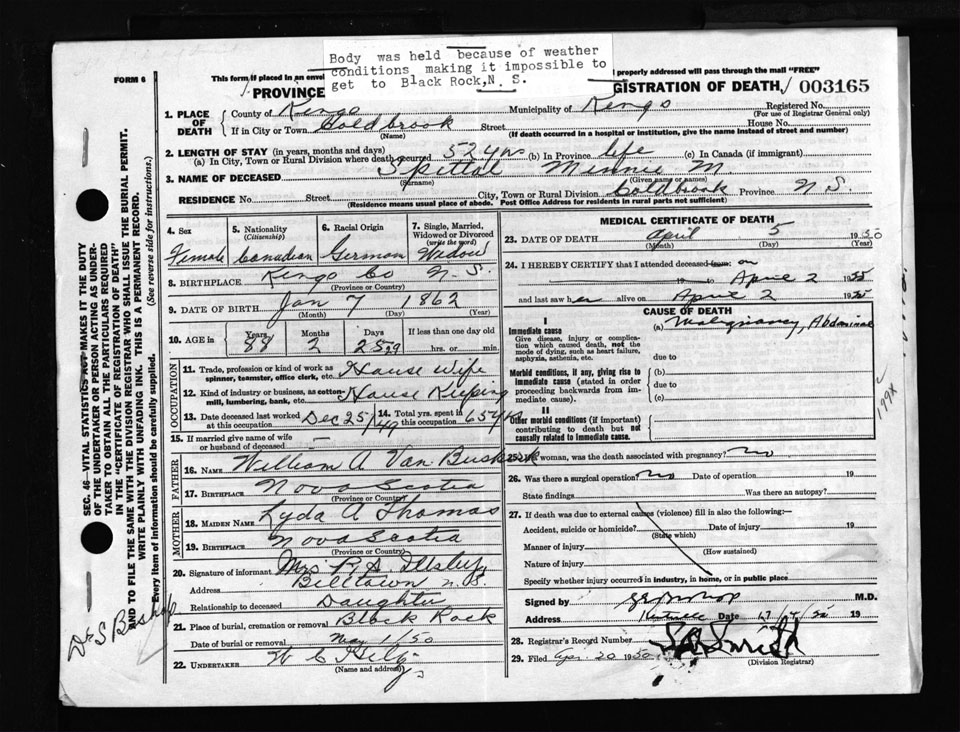 Body was held because of weather
conditions making it impossible to
get to Black Rock,N. S.
FORM 6
This form if placed in an envel
properly addressed will pass through the mail "FREE"
PROVINCE
GISTRATION OF DEATH
003165
1. PLACE OF DEATH
County of Kings Municipality of Kings Registered No.
(For use of Registrar General only)
If in City or Town Coldbrook Street House No.
(Name) (If death occurred in a hospital or institution, give the name instead of street and number)
2. LENGTH OF STAY (in years, months and days)
(a) In City, Town or Rural Division where death occurred 52 yrs (b) In Province life (c) In Canada (if immigrant)
3. NAME OF DECEASED Spittal Minnie M.
(Surname) (Given name or names)
RESIDENCE No. Street City, Town or Rural Division Coldbrook Province N. S.
(Residence means usual place of abode. Post Office Address for residents in rural parts not sufficient)
4. Sex 5. Nationality 6. Racial Origin 7. Single, Married,
(Citizenship) Widowed or Divorced
(write the word)
Female Canadian German Widow
8. BIRTHPLACE Kings Co N. S.
(Province or Country)
9. DATE OF BIRTH Jan 7 1862
(Month) (Day) (Year)
10. AGE in Years Months Days If less than one day old
88 2 29 hrs. or min.
OCCUPATION
11. Trade, profession or kind of work as
spinner, teamster, office clerk, etc. House Wife
12. Kind of industry or business, as cotton
mill, lumbering, bank, etc. House Keeping
13. Date deceased last worked
at this occupation Dec 25/49
14. Total yrs. spent in
this occupation 65 yrs
15. If married give name of wife
or husband of deceased —
FATHER
16. NAME William A Van Buskirk
17. BIRTHPLACE Nova Scotia
(Province or Country)
MOTHER
18. MAIDEN NAME Lyda A Thomas
19. BIRTHPLACE Nova Scotia
(Province or Country)
20. Signature of informant Mrs R. S. Illsley
Address Billtown N. S.
Relationship to deceased Daughter
21. Place of burial, cremation or removal Black Rock
Date of burial or removal May 1/50
22. UNDERTAKER W C
(Name and address)
MEDICAL CERTIFICATE OF DEATH
23. DATE OF DEATH April 5 1950
(Month) (Day) (Year)
24. I HEREBY CERTIFY that I attended deceased from: on
to April 2 19
and last saw her alive on April 2 19
CAUSE OF DEATH
I
Immediate cause
Give disease, injury or complica-
tion which caused death, not the
mode of dying, such as heart failure,
asphyxia, asthenia, etc.
(a) Malignancy, Abdominal
due to
Morbid conditions, if any, giving rise to
immediate cause (stated in order
proceeding backwards from im-
mediate cause).
(b)
due to
(c)
II
Other morbid conditions (if important)
contributing to death but not
causally related to immediate cause.
199X
25. If a woman, was the death associated with pregnancy? no
26. Was there a surgical operation? no Date of operation 19
State findings Was there an autopsy?
27. If death was due to external causes (violence) fill in also the following:-
Accident, suicide or homicide? Date of injury 19
(State which)
Manner of injury (How sustained)
Nature of injury
Specify whether injury occurred in industry, in home, or in public place
Signed by M.D.
Address Date 19
28. Registrar's Record Number
29. Filed Apr. 20 1950 Smith
(Division Registrar)
SEC. 46—VITAL STATISTICS ACT MAKES IT THE DUTY
OF THE UNDERTAKER OR PERSON ACTING AS UNDER-
TAKER TO OBTAIN ALL THE PARTICULARS REQUIRED
IN THE "CERTIFICATE OF REGISTRATION OF DEATH"
AND TO FILE THE SAME WITH THE DIVISION REGISTRAR WHO SHALL ISSUE THE BURIAL PERMIT.
WRITE PLAINLY WITH UNFADING INK. THIS IS A PERMANENT RECORD.
Every item of information should be carefully supplied. (See reverse side for instructions.)
Bishop